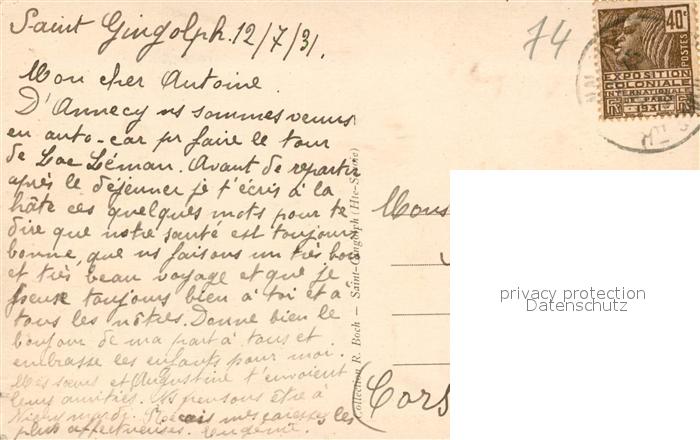 Saint Gingolph. 12/7/31.
74
40c
POSTES
EXPOSITION
COLONIALE
INTERNATIONALE
DE PARIS
1931
Mon cher Antoine
D'Annecy ns sommes venus
en auto-car pr faire le tour
de Lac Léman. Avant de repartir
après le déjeuner je t'écris à la
hâte ces quelques mots pour te
dire que notre santé est toujours
bonne, que ns faisons un très bon
et très beau voyage et que je
pense toujours bien à toi et à
tous les nôtres. Donne bien le
bonjour de ma part à tous et
embrasse les enfants pour moi.
Mes sœurs et Augustine t'envoient
leurs amitiés. Ns pensons être à
mardi. mes caresses les
plus affectueuses. Eugénie.
Collection R. Boch — Saint-Gingolph (Hte-Savoie)
Mons
(Cors
privacy protection
Datenschutz